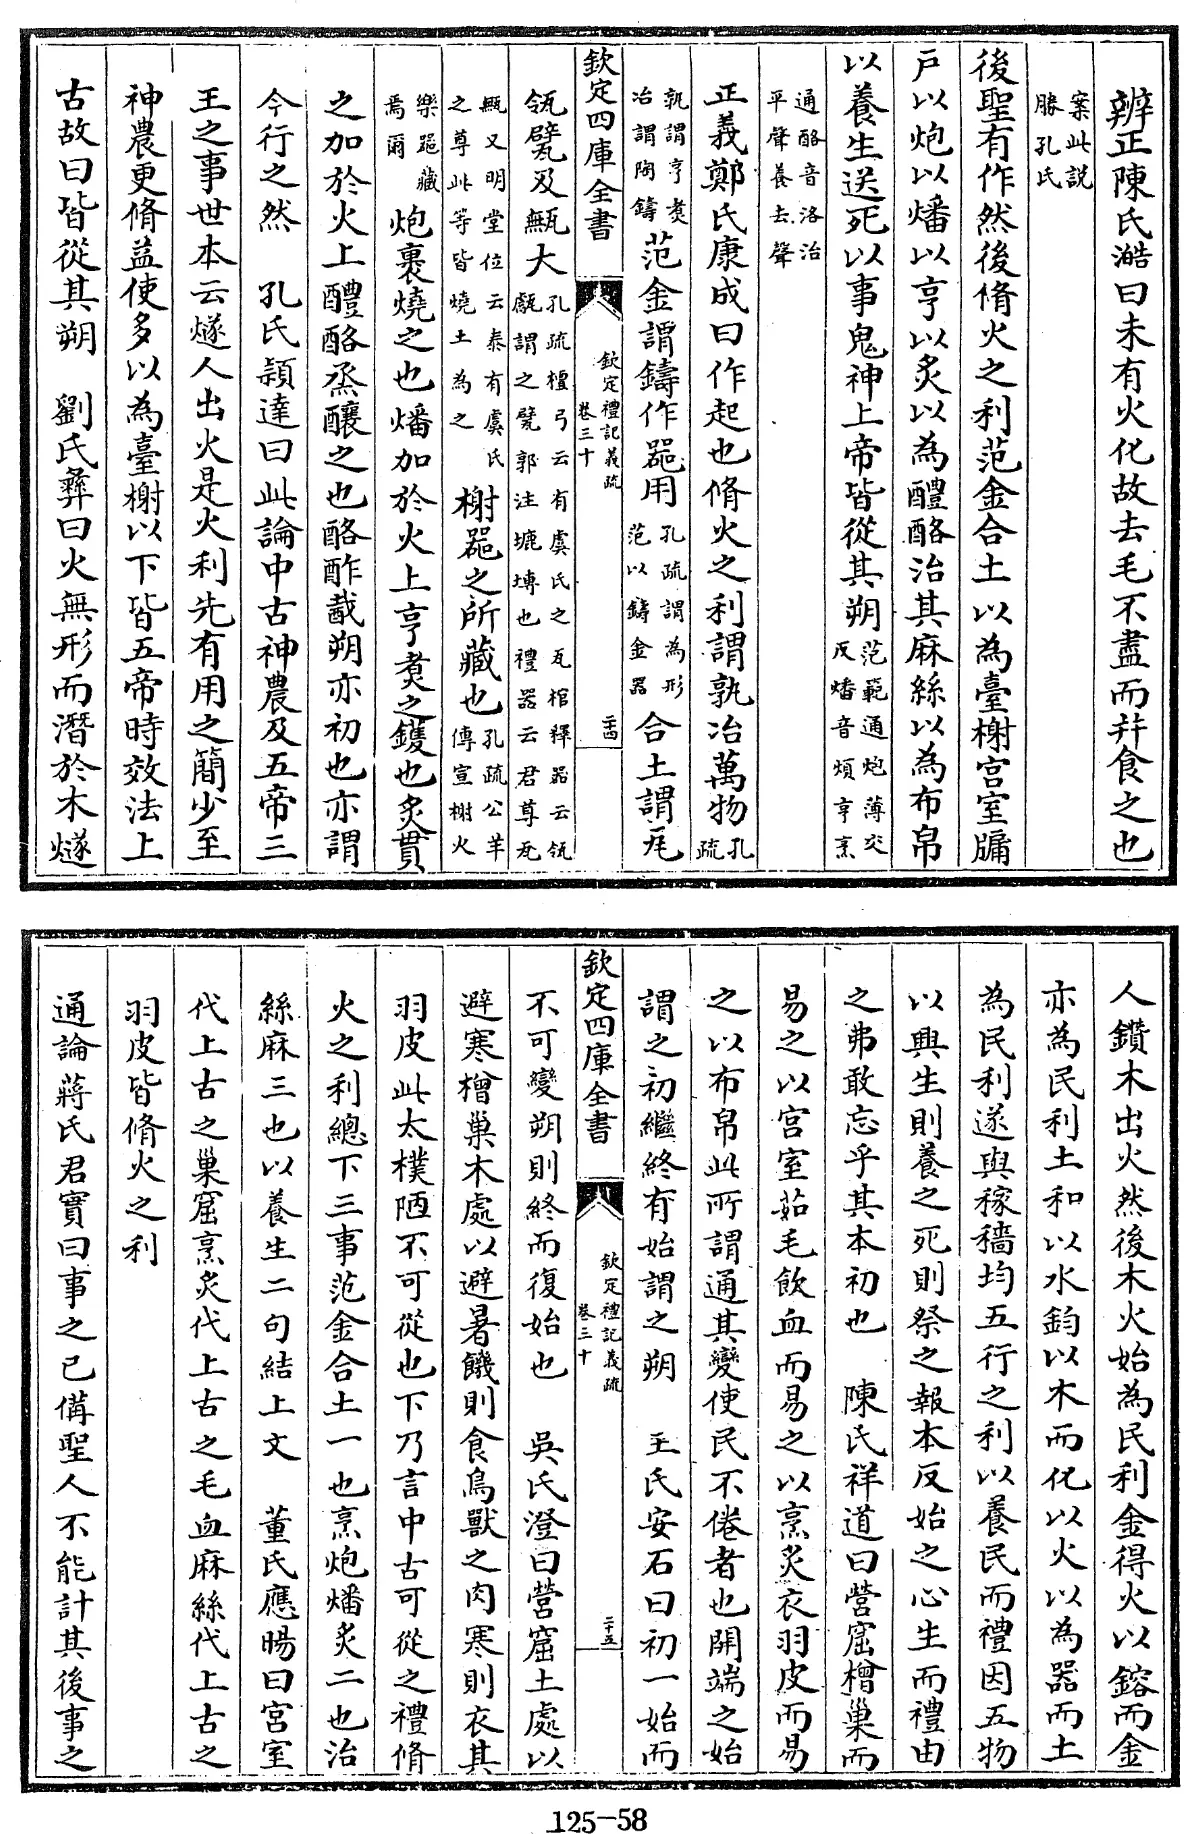 辨正陳氏澔曰未有火化故去毛不盡而幷食之也
案此説
勝孔氏
後聖有作然後脩火之利范金合土以為臺榭宫室牖
戸以炮以燔以亨以炙以為醴酪治其麻絲以為布帛
以養生送死以事鬼神上帝皆從其朔
范範通炮薄交
反燔音煩亨烹
通酪音洛治
平聲養去聲
正義鄭氏康成曰作起也脩火之利謂孰冶萬物
孔
疏
孰謂亨煑
冶謂陶鑄
范金謂鑄作器用
孔疏謂為形
范以鑄金器
合土謂瓦
欽定四庫全書
欽定禮記義疏
卷三十
二十四
瓴甓及甒大
孔疏檀弓云有虞氏之瓦棺釋器云瓴
甋謂之甓郭注㼾塼也禮器云君尊瓦
甒又明堂位云泰有虞氏
之尊此等皆燒土為之
榭器之所藏也
孔疏公羊
傳宣榭火
樂器藏
焉爾
炮裹燒之也燔加於火上亨煑之鑊也炙貫
之加於火上醴酪烝釀之也酪酢酨朔亦初也亦謂
今行之然　孔氏頴達曰此論中古神農及五帝三
王之事世本云燧人出火是火利先有用之簡少至
神農更脩益使多以為臺榭以下皆五帝時效法上
古故曰皆從其朔　劉氏彝曰火無形而潛於木燧
人鑽木出火然後木火始為民利金得火以鎔而金
亦為民利土和以水鈞以木而化以火以為器而土
為民利遂與稼穡均五行之利以養民而禮因五物
以興生則養之死則祭之報本反始之心生而禮由
之弗敢忘乎其本初也　陳氏祥道曰營窟橧巢而
易之以宫室茹毛飲血而易之以烹炙衣羽皮而易
之以布帛此所謂通其變使民不倦者也開端之始
謂之初繼終有始謂之朔　王氏安石曰初一始而
欽定四庫全書
欽定禮記義疏
卷三十
二十五
不可變朔則終而復始也　吳氏澄曰營窟土處以
避寒橧巢木處以避暑饑則食鳥獸之肉寒則衣其
羽皮此太樸陋不可從也下乃言中古可從之禮脩
火之利總下三事范金合土一也烹炮燔炙二也治
絲麻三也以養生二句結上文　董氏應暘曰宮室
代上古之巢窟烹炙代上古之毛血麻絲代上古之
羽皮皆脩火之利
通論蔣氏君實曰事之已備聖人不能計其後事之
125-58